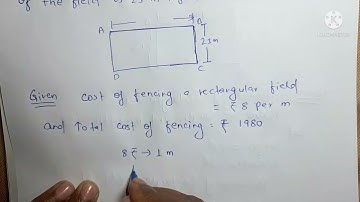 of the field is 23 m
A
B
23m
D
C
Given cost of fencing a rectangular field
= ₹ 8 per m
and Total cost of fencing = ₹ 1980
8 ₹ → 1 m